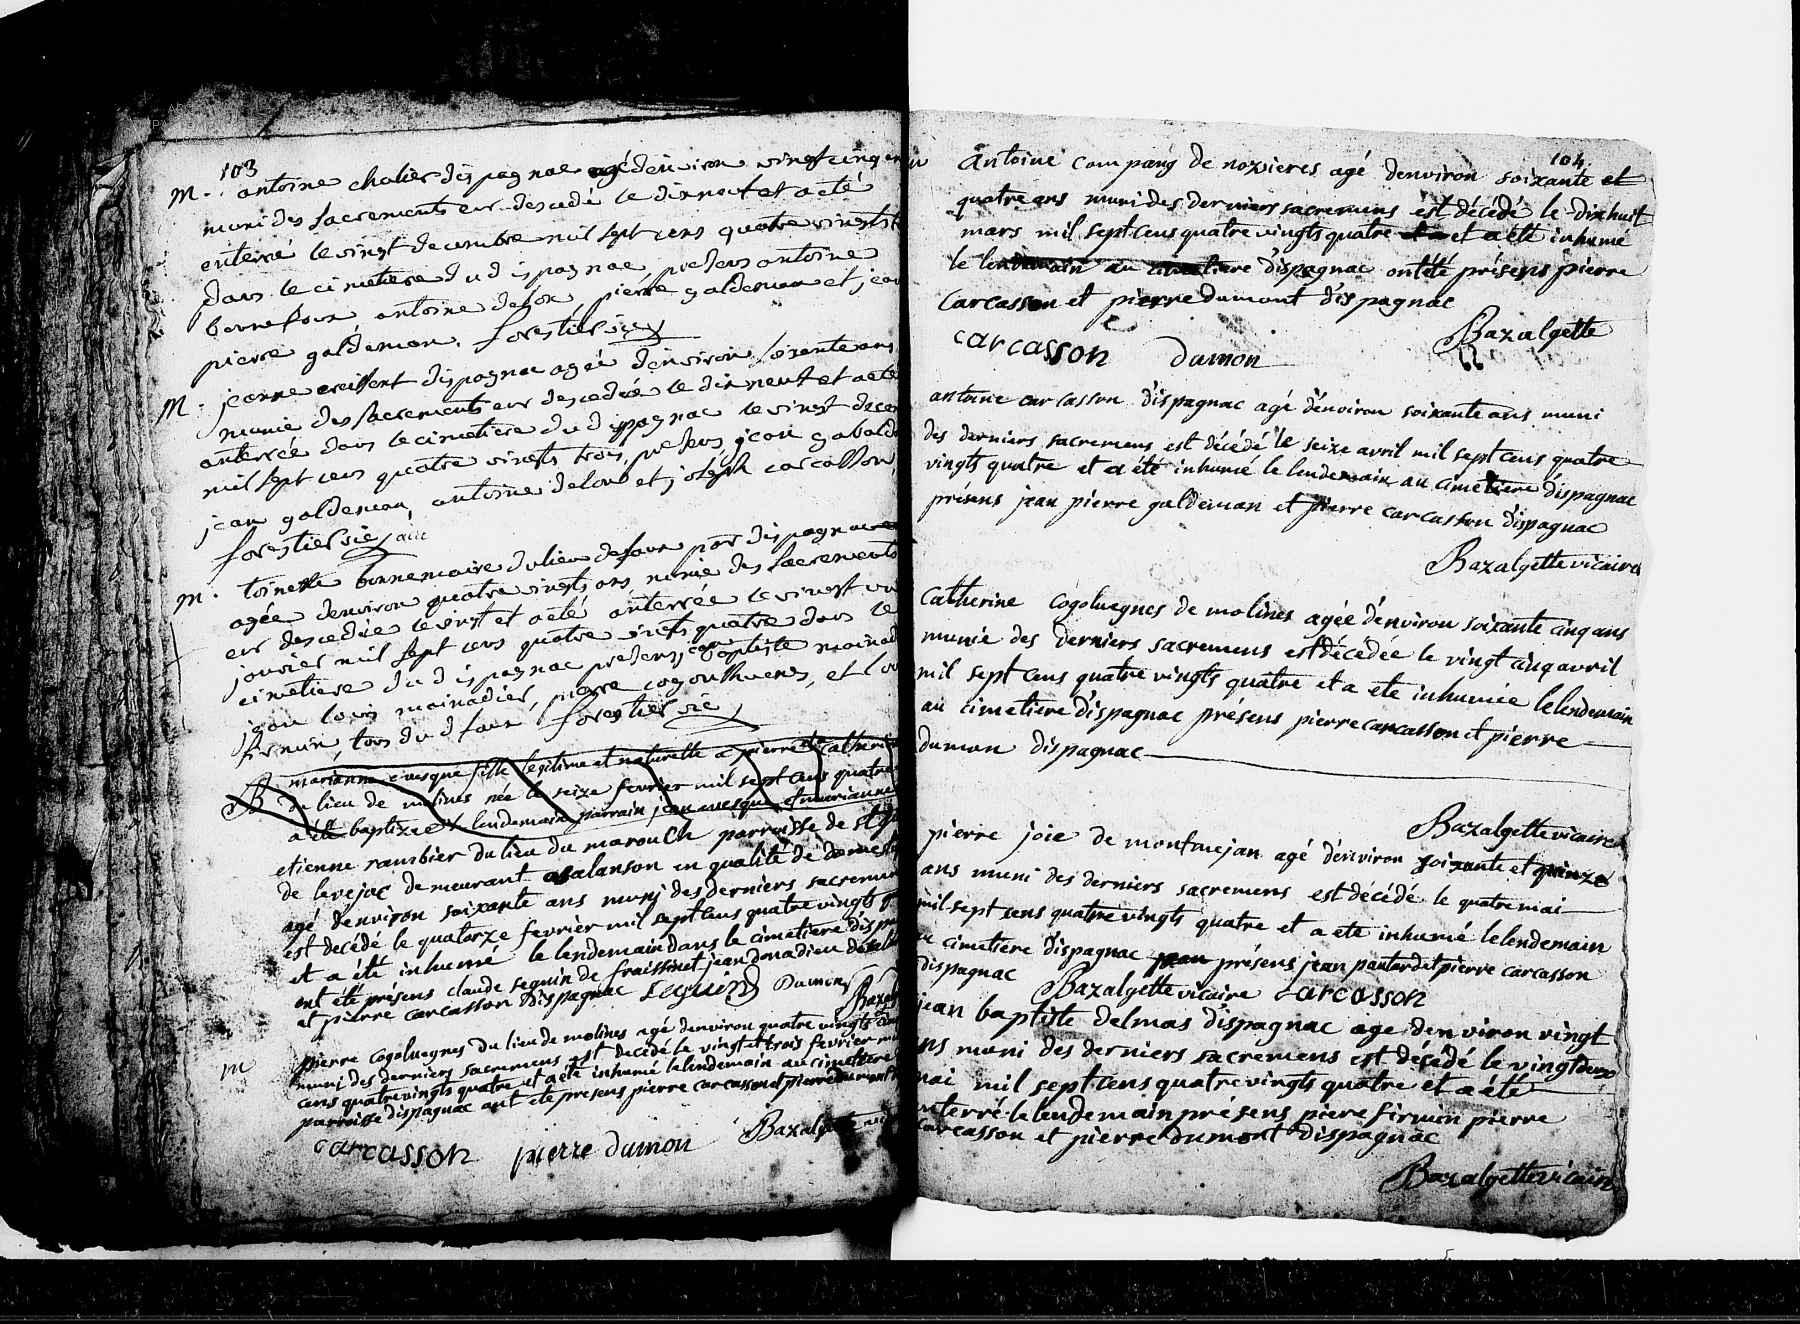 103
M. antoine chalier dispagnac agé denviron vingt cinq ans
muni des sacrements est descedé le dixneuf et a eté
enterré le vingt decembre mil sept cens quatre vingts
dans le cimetiere dud ispagnac, presens antoine
bonnefoux antoine pierre galdeman et jean
pierre galdeman. forestier vic
M. jeanne dispagnac agée denviron soixente ans
munie des sacrements est descedée le dixneuf et a eté
anterrée dans le cimetiere dud ispagnac le vingt decem
mil sept cens quatre vingts trois, presens jean
jean galdeman, antoine et joseph carcasson
forestier vic
m. toinette bonnemaire du lieu de faux par dispagnac
agée denviron quatre vingts ans munie des sacrements
est descedée le vingt et a eté anterrée le vingt un
janvier mil sept cens quatre vints quatre dans le
cimetiere du d ispagnac presens jean baptiste mainad
jean louis mainadier, pierre et lou
firmin, tous du d faux forestier vic
B marianne evesque fille legitime et naturelle a pierre et catherine
du lieu de molines née le seize fevrier mil sept cens quatre
a été baptizée lendemain parrain jean evesque et marianne
etienne rambier du lieu du marouch parroisse de st
de levejac demeurant asalanson en qualité de domes
agé denviron soixante ans muni des derniers sacremens
est decédé le quatorze fevrier mil sept cens quatre vingts
et a été inhumé le lendemain dans le cimetiere dispa
ont été présens claude seguin de fraissinet jean donadieu
et pierre carcasson dispagnac Seguin Dumon Bazal
m pierre cogoluegnes du lieu de molines agé denviron quatre vingts
muni des derniers sacremens est decédé le vingt et trois fevrier mil
cens quatre vingts quatre et a eté inhumé le lendemain au cimetiere
parroisse dispagnac ont eté presens pierre carcasson et pierre dumont
carcasson pierre dumon Bazalgette vic
104.
Antoine compang de nozieres agé denviron soixante et
quatre ans muni des derniers sacremens est décédé le dixhuit
mars mil sept cens quatre vingts quatre et a été inhumé
le lendemain au cimetiere dispagnac ont été présens pierre
Carcasson et pierre dumont dispagnac
Bazalgette
carcasson Dumon
antoine carcasson dispagnac agé denviron soixante ans muni
des derniers sacremens est décédé le seize avril mil sept cens quatre
vingts quatre et a été inhumé le lendemain au cimetiere dispagnac
présens jean pierre galdeman et pierre carcasson dispagnac
Bazalgette vicaire
Catherine Cogoluegnes de molines agée denviron soixante cinq ans
munie des derniers sacremens est décédée le vingt cinq avril
mil sept cens quatre vingts quatre et a eté inhumée le lendemain
au cimetiere dispagnac présens pierre carcasson et pierre
dumon dispagnac
Bazalgette vicaire
pierre joie de montmejan agé denviron soixante et quinze
ans muni des derniers sacremens est décédé le quatre mai
mil sept cens quatre vingts quatre et a eté inhumé le lendemain
au cimetiere dispagnac jean présens jean pantard et pierre carcasson
dispagnac Bazalgette vicaire Carcasson
jean baptiste delmas dispagnac agé denviron vingt
ans muni des derniers sacremens est décédé le vingt deux
mai mil sept cens quatre vingts quatre et a été
enterré le lendemain présens piere firmin pierre
carcasson et pierre dumont dispagnac
Bazalgette vicaire